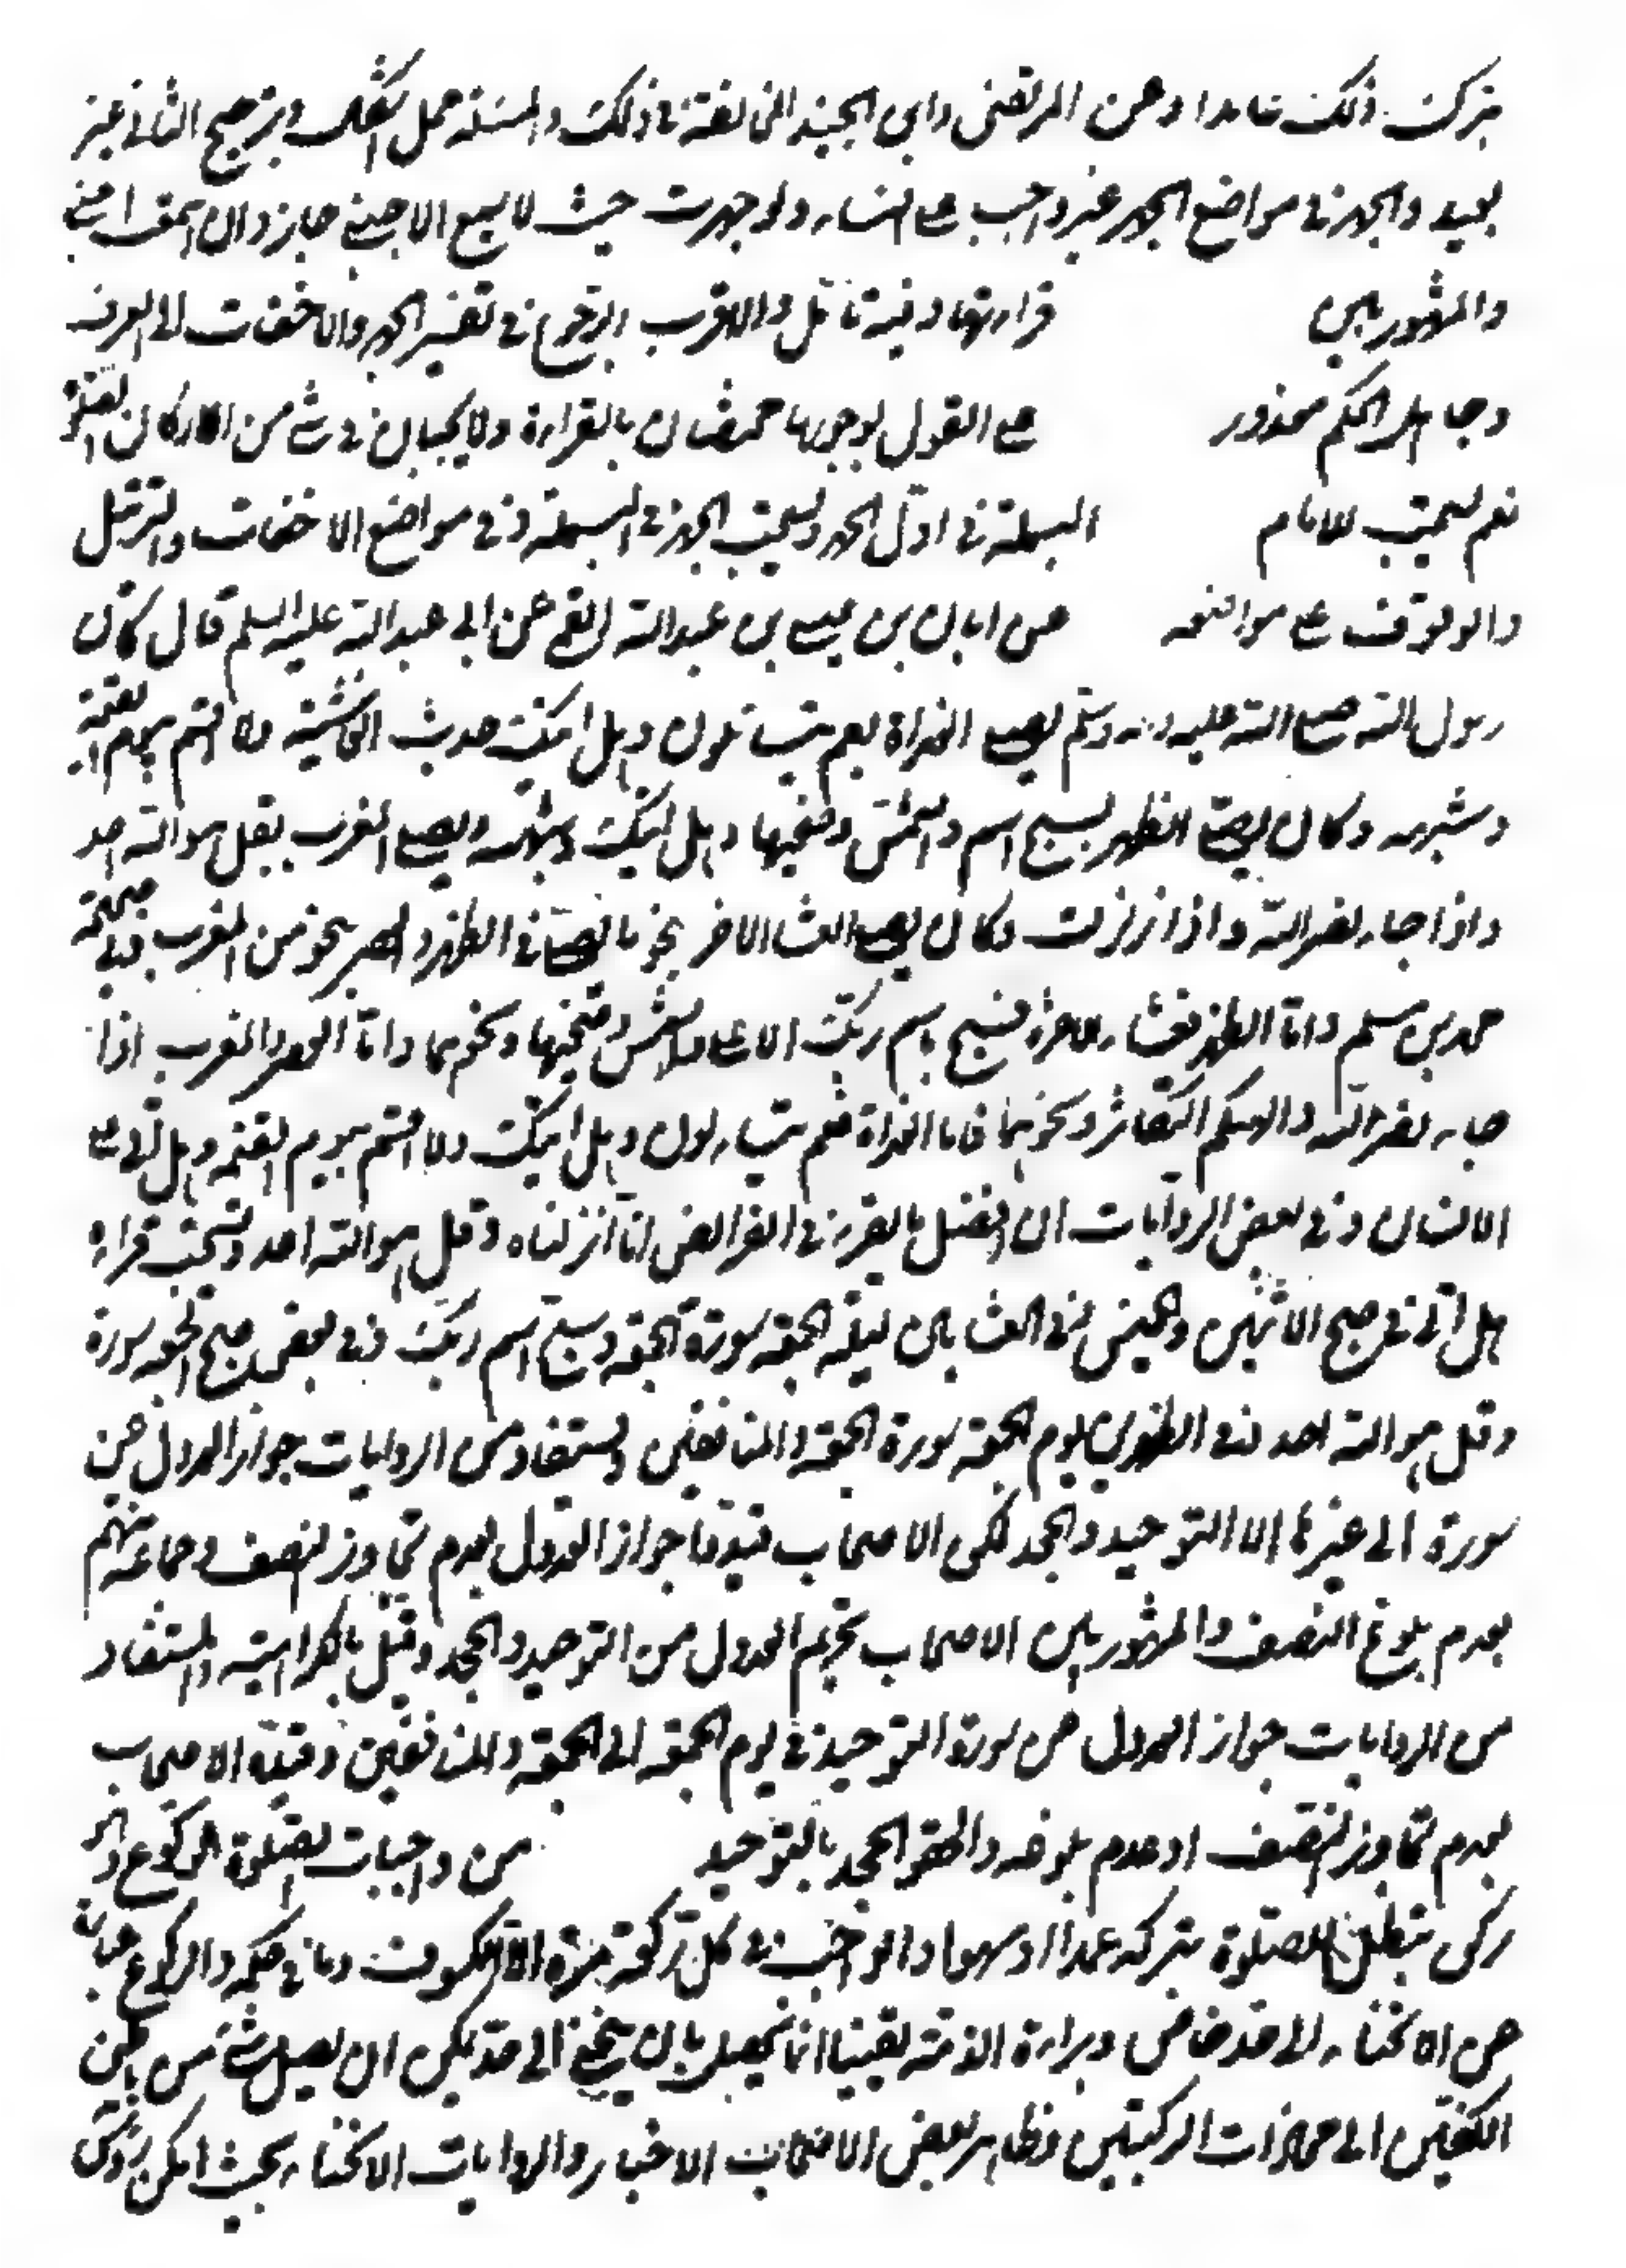 بترك ذلك عامدا وعن المرتضى وابن الجنيد المخالفة في ذلك والمسئلة محل اشكال وترجيح الثاني غير
بعيد والجهر في مواضع الجهر غير واجب على النساء ولو جهرت حيث لا يسمع الاجنبي جاز والا
والمشهور بين قرائتها وفيه تامل والاقرب الرجوع في تفسير الجهر والاخفات الى العرف
وجاهل الحكم معذور على القول بوجوبها مختصان بالقراءة ولا يجبان في شئ من الاذكار
نعم يستحب للامام البسملة في اول الحمد ويستحب الجهر في البسملة في مواضع الاخفات والترتيل
والوقوف على مواضعه عن ابان بن عيسى بن عبدالله القمي عن ابي عبدالله عليه السلم قال كان
رسول الله صلى الله عليه واله وسلم يصلي الغداة بعم يتسائلون وهل اتيك حديث الغاشية ولا اقسم بيوم القيمة
وشبهه وكان يصلي الظهر بسبح اسم والشمس وضحيها وهل اتيك وشبهه ويصلي المغرب بقل هو الله احد
واذا جاء نصر الله واذا زلزلت وكان يصلي العشاء الاخر بنحو ما يصلي في الظهر والعصر بنحو من المغرب وفي صحيحة
محمد بن مسلم واما الظهر والعشاء الاخرة فسبح باسم ربك الاعلى والشمس وضحيها ونحوهما واما العصر والمغرب اذا
جاء نصر الله والهيكم التكاثر ونحوهما فاما الغداة فعم يتساءلون وهل اتيك ولا اقسم بيوم القيمة وهل اتى على
الانسان وفي بعض الروايات ان افضل ما يقرء في الفرائض انا انزلناه وقل هو الله احد ويستحب قراءة
هل اتى في صبح الاثنين والخميس وفي العشائين ليلة الجمعة سورة الجمعة وسبح اسم ربك وفي بعض صبح الجمعة سورة
وقل هو الله احد وفي الظهرين يوم الجمعة سورة الجمعة والمنافقين ويستفاد من الروايات جواز العدول عن
سورة الى غيرها الا التوحيد والجحد لكن الاصحاب قيدوا جواز العدول بعدم تجاوز النصف وجماعة منهم
بعدم بلوغ النصف والمشهور بين الاصحاب تحريم العدول من التوحيد والجحد وقيل بالكراهية والمستفاد
من الروايات جواز العدول عن سورة التوحيد في يوم الجمعة الى الجمعة والمنافقين وقيده الاصحاب
بعدم تجاوز النصف او عدم بلوغه والحقوا الجحد بالتوحيد من واجبات الصلوة الركوع وانه
ركن تبطل الصلوة بتركه عمدا او سهوا والواجب في كل ركعة مرة الا الكسوف وما في حكمه والركوع عبارة
عن الانحناء الى حد خاص وبراءة الذمة يقينا انما يحصل بان ينحني الى حد يمكن ان يصل شئ من باطن
الكفين الى محاذات الركبتين وظاهر بعض الاصحاب الاخبار والروايات الانحناء بحيث امكن